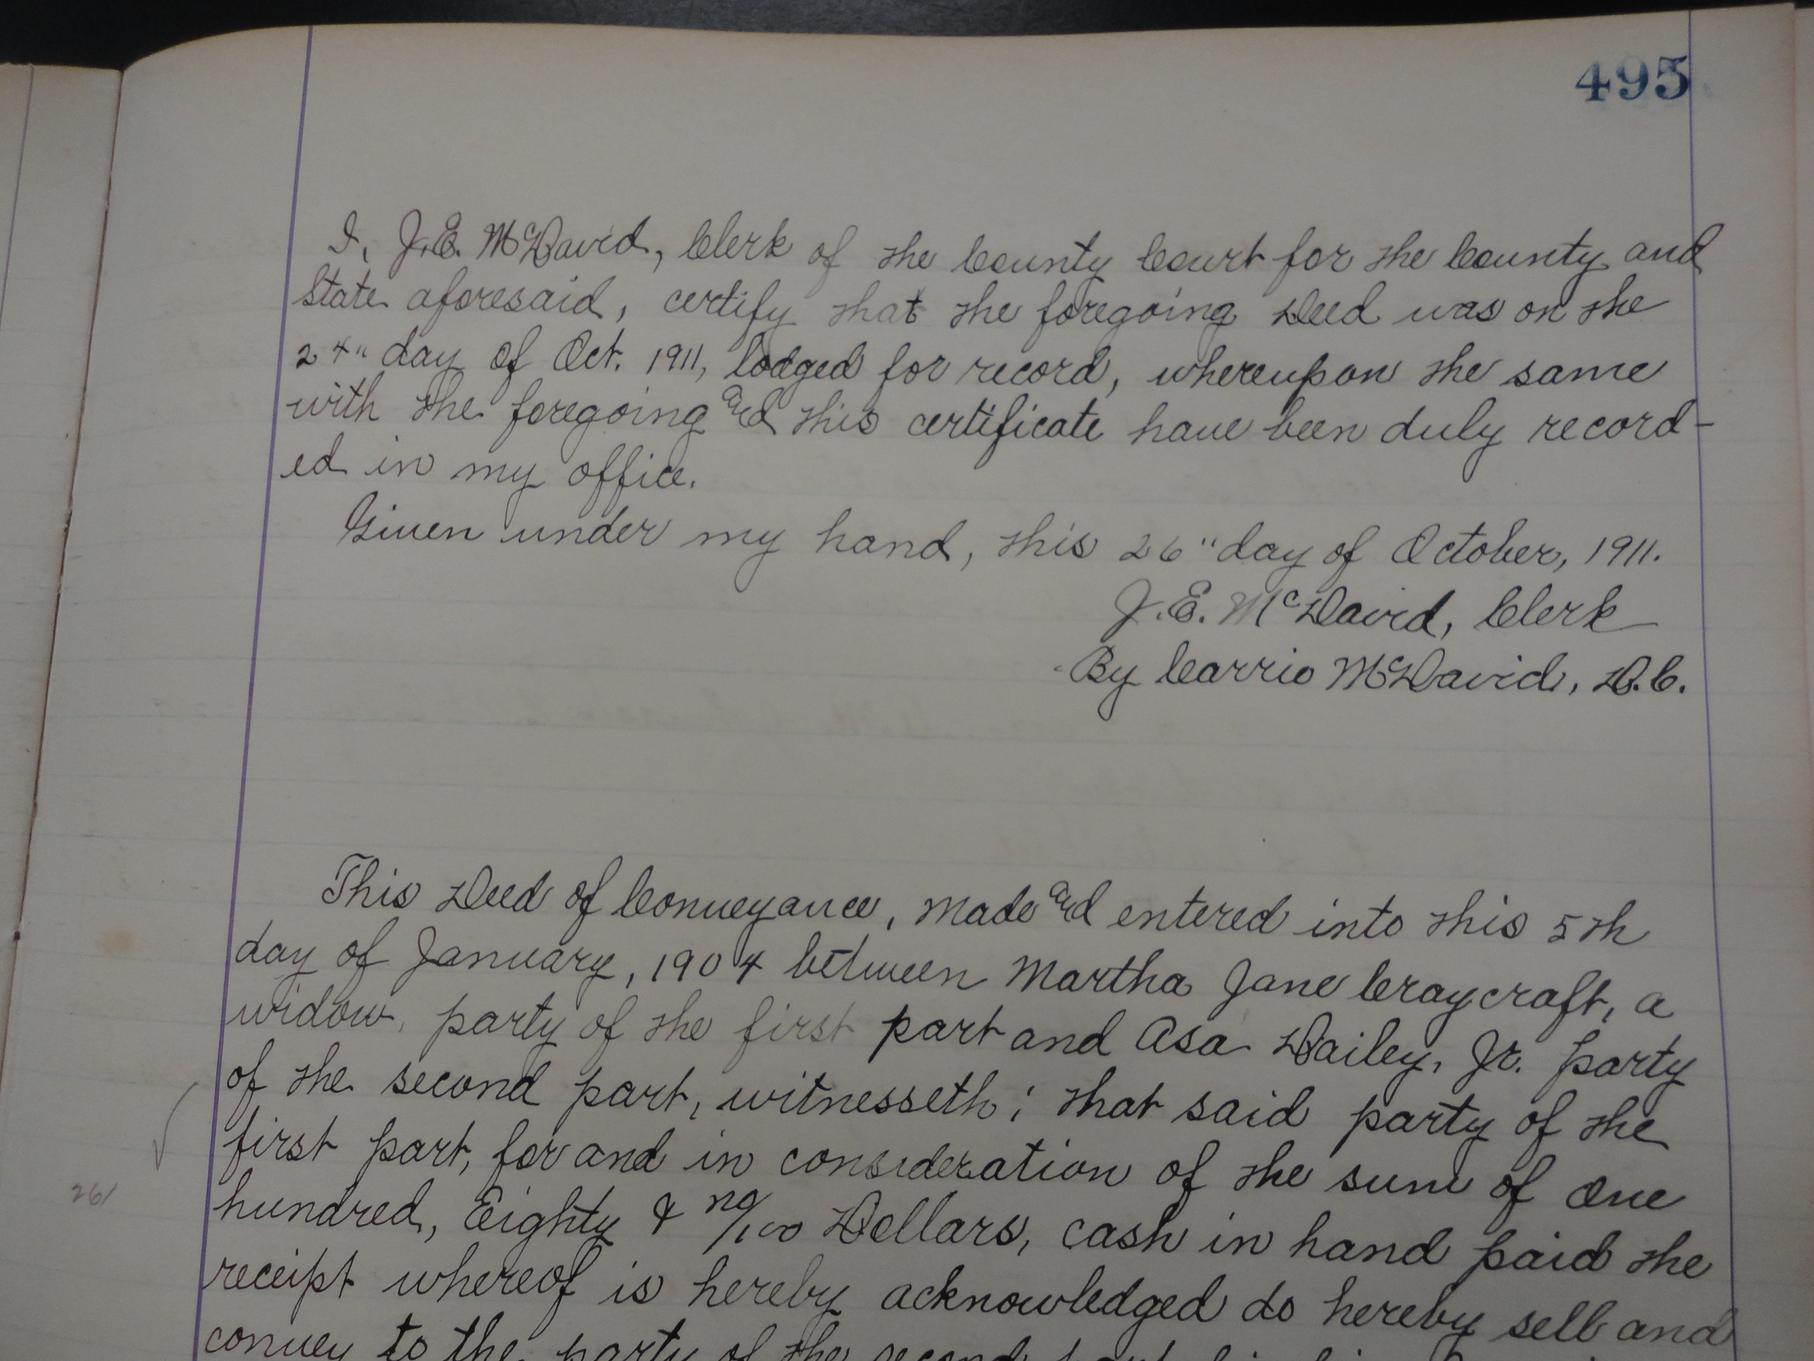 495
I, J.E. McDavid, Clerk of the County Court for the County and
State aforesaid, certify that the foregoing Deed was on the
24" day of Oct. 1911, lodged for record, whereupon the same
with the foregoing and this certificate have been duly record-
ed in my office.
Given under my hand, this 26" day of October, 1911.
J.E. McDavid, Clerk
By Carrie McDavid, D.C.
This Deed of Conveyance, made and entered into this 5th
day of January, 1904 between Martha Jane Craycraft, a
widow, party of the first part and Asa Dailey, Jr. party
of the second part, witnesseth; that said party of the
first part, for and in consideration of the sum of One
hundred, Eighty & no/100 Dollars, cash in hand paid the
261
receipt whereof is hereby acknowledged do hereby sell and
convey to the party of the second part